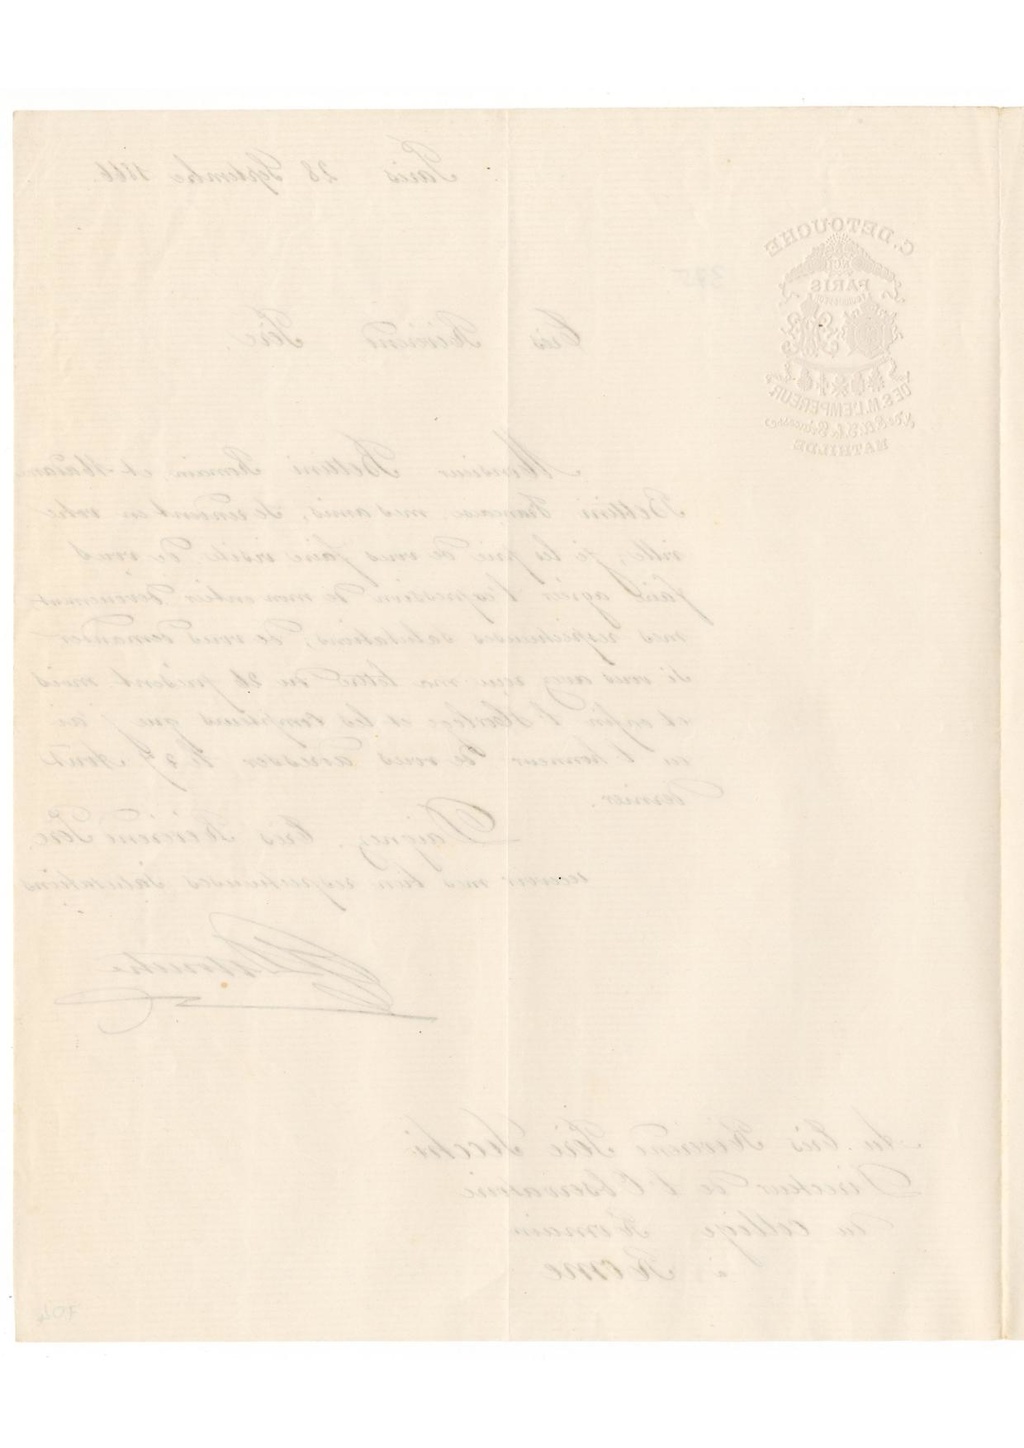 Paris 28 Septembre 1866
C. DETOUCHE
PARIS
DE S. M. L'EMPEREUR
MATHILDE
Très Révérend Père,
Monsieur Bettini Romain, et Madame
Bettini Française, mes amis, se rendent en votre
ville, je les prie de vous faire visite, de vous
faire agréer l'expression de mon entier dévouement
mes respectueuses salutations, de vous demander
si vous avez reçu ma lettre du 26 présent mois
et enfin l'Horloge et les compteurs que j'ai
eu l'honneur de vous adresser le 27 Août
dernier.
Daignez, très Révérend Père,
recevoir mes bien respectueuses salutations
CDetouche
Au très Révérend Père Secchi
Directeur de l'Observatoire
du collège Romain
à Rome